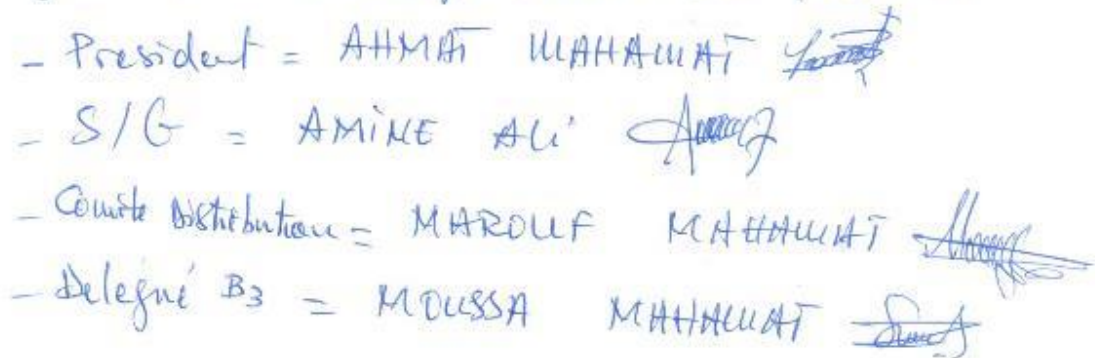 - President = AHMAT MAHAMAT
- S/G = AMINE ALI
- Comite Distribution = MAROUF MAHAMAT
- Delegué B3 = MOUSSA MAHAMAT